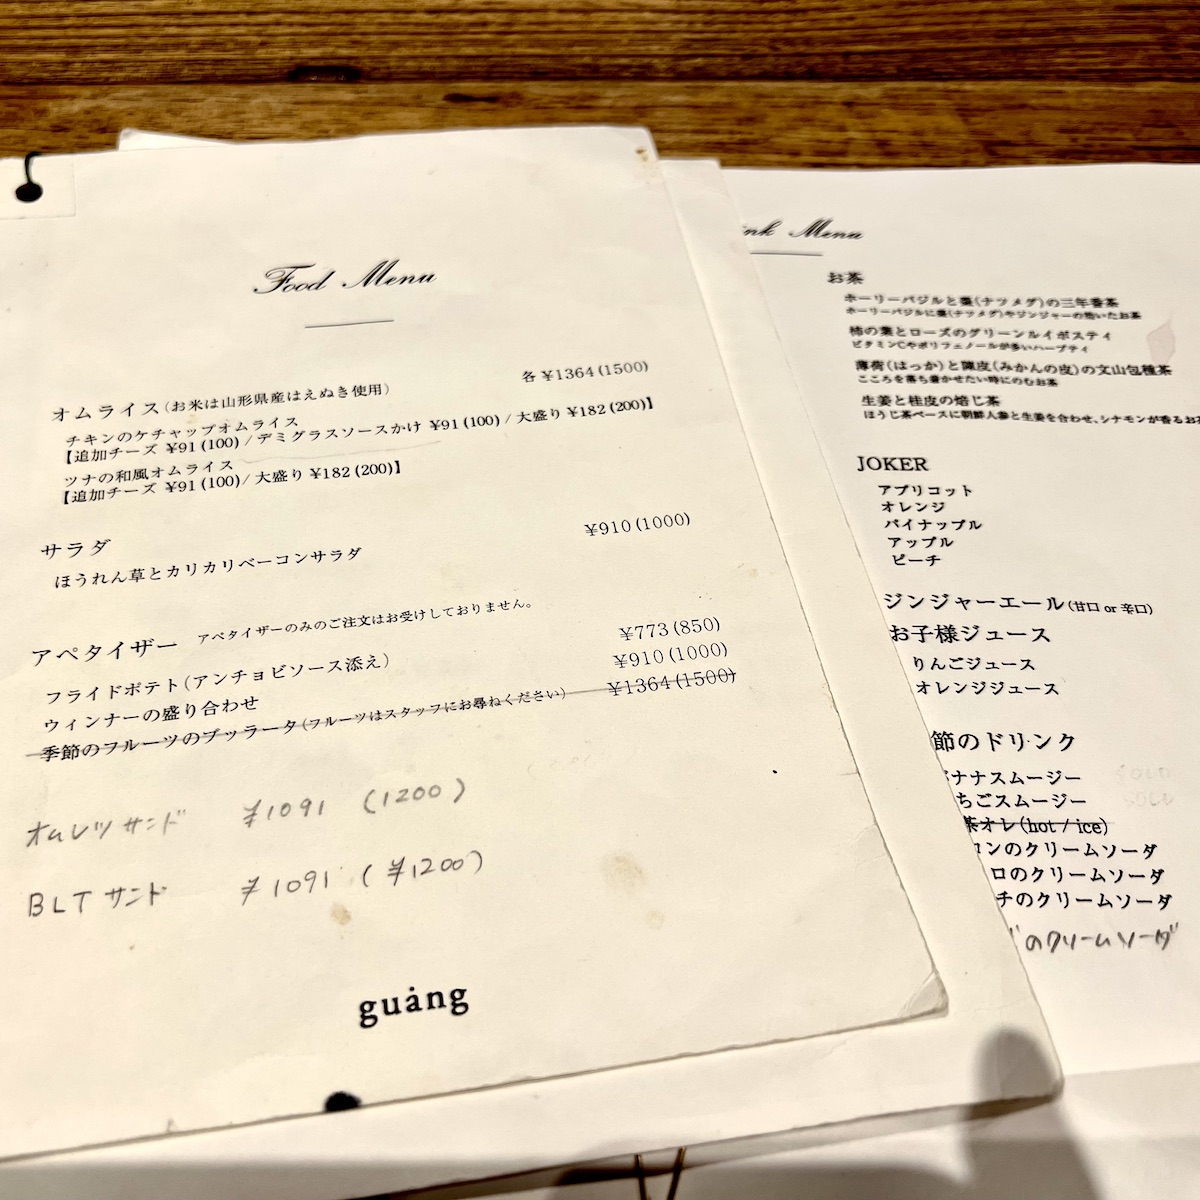 Food Menu
オムライス(お米は山形県産はえぬき使用)
各 ¥1364(1500)
チキンのケチャップオムライス
【追加チーズ ¥91(100)/デミグラスソースかけ ¥91(100)/大盛り ¥182(200)】
ツナの和風オムライス
【追加チーズ ¥91(100)/大盛り ¥182(200)】
サラダ
¥910(1000)
ほうれん草とカリカリベーコンサラダ
アペタイザー アペタイザーのみのご注文はお受けしておりません。
フライドポテト(アンチョビソース添え) ¥773(850)
ウィンナーの盛り合わせ ¥910(1000)
季節のフルーツのブッラータ(フルーツはスタッフにお尋ねください) ¥1364(1500)
オムレツサンド ¥1091 (1200)
BLTサンド ¥1091 (¥1200)
guǎng
ink Menu
お茶
ホーリーバジルと棗(ナツメグ)の三年番茶
ホーリーバジルに棗(ナツメグ)やジンジャーの効いたお茶
柿の葉とローズのグリーンルイボスティ
ビタミンCやポリフェノールが多いハーブティ
薄荷(はっか)と陳皮(みかんの皮)の文山包種茶
こころを落ち着かせたい時にのむお茶
生姜と桂皮の焙じ茶
ほうじ茶ベースに朝鮮人参と生姜を合わせ、シナモンが香るお茶
JOKER
アプリコット
オレンジ
パイナップル
アップル
ピーチ
ジンジャーエール(甘口 or 辛口)
お子様ジュース
りんごジュース
オレンジジュース
節のドリンク
バナナスムージー
ちごスムージー
茶オレ(hot / ice)
コンのクリームソーダ
ロのクリームソーダ
チのクリームソーダ
のクリームソーダ